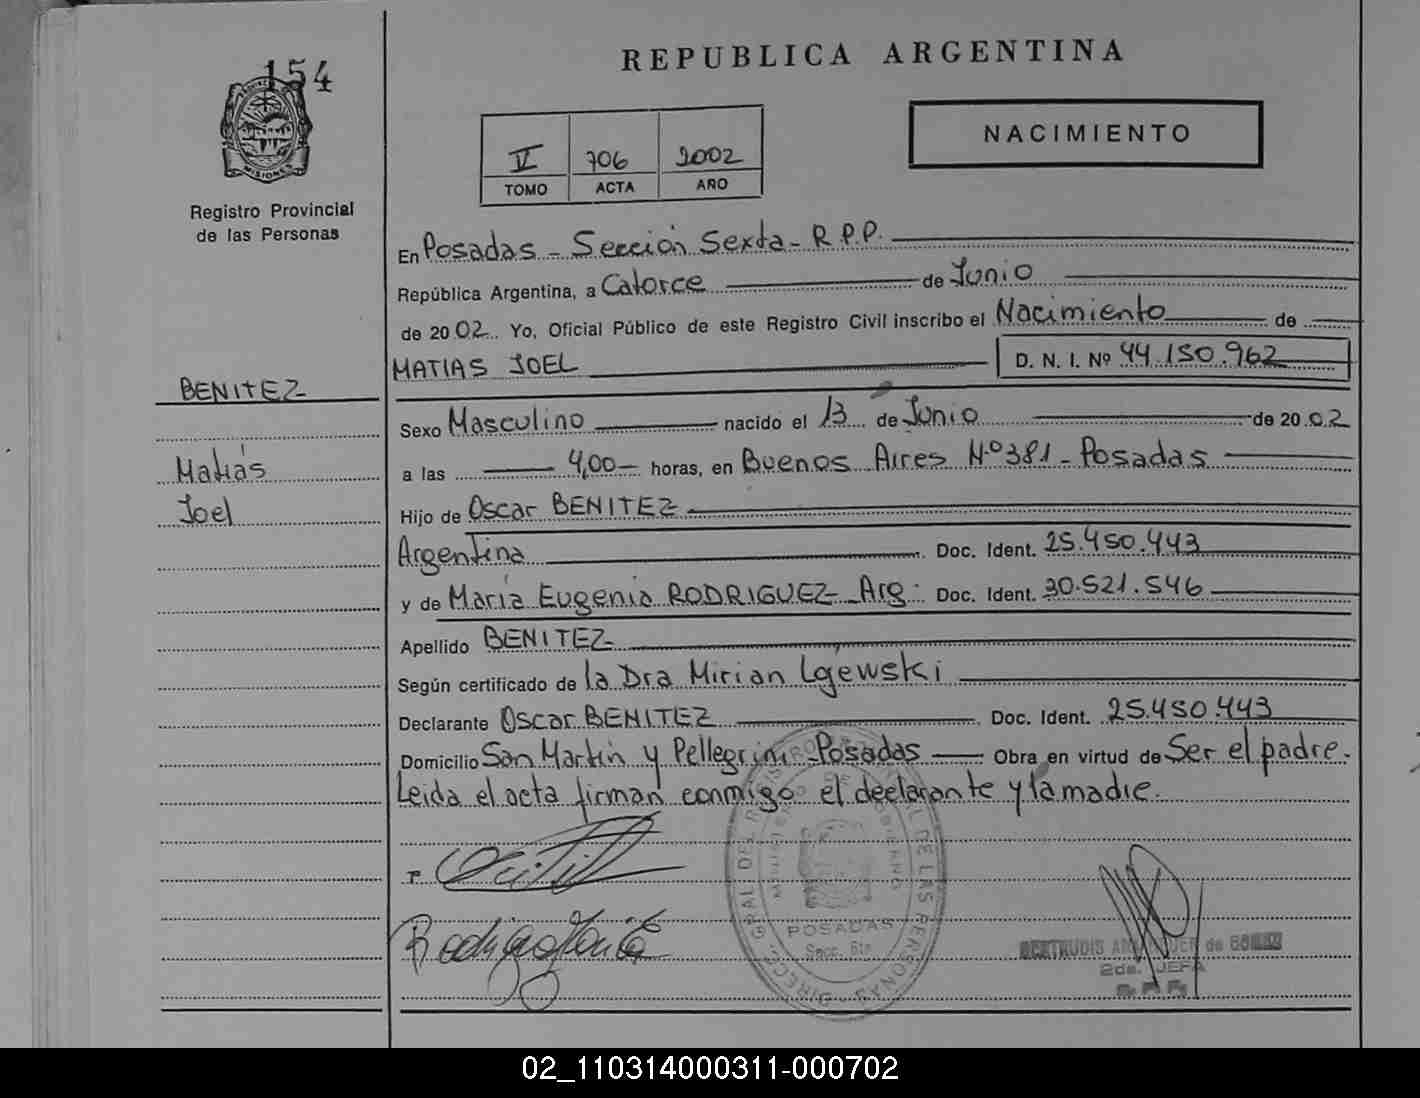 REPUBLICA ARGENTINA
154
MISIONES
Registro Provincial
de las Personas
V 706 2002
TOMO ACTA AÑO
NACIMIENTO
En Posadas - Sección Sexta - R.P.P.
República Argentina, a Catorce de Junio
de 2002. Yo, Oficial Público de este Registro Civil inscribo el Nacimiento de
MATIAS JOEL D. N. I. Nº 44.150.962
BENITEZ
Matías
Joel
Sexo Masculino nacido el 13 de Junio de 2002
a las 4,00 horas, en Buenos Aires Nº 381 - Posadas
Hijo de Oscar BENITEZ
Argentina Doc. Ident. 25.450.443
y de María Eugenia RODRIGUEZ Arg. Doc. Ident. 30.521.546
Apellido BENITEZ
Según certificado de la Dra Mirian
Declarante Oscar BENITEZ Doc. Ident. 25.450.443
Domicilio San Martín y Pellegrini - Posadas Obra en virtud de Ser el padre.
Leida el acta firman conmigo el declarante y la madre.
DIREC. GRAL DEL REGISTRO DE LAS PERSONAS
POSADAS
Secc. 6ta
GERTRUDIS de
2da. JEFA
02_110314000311-000702